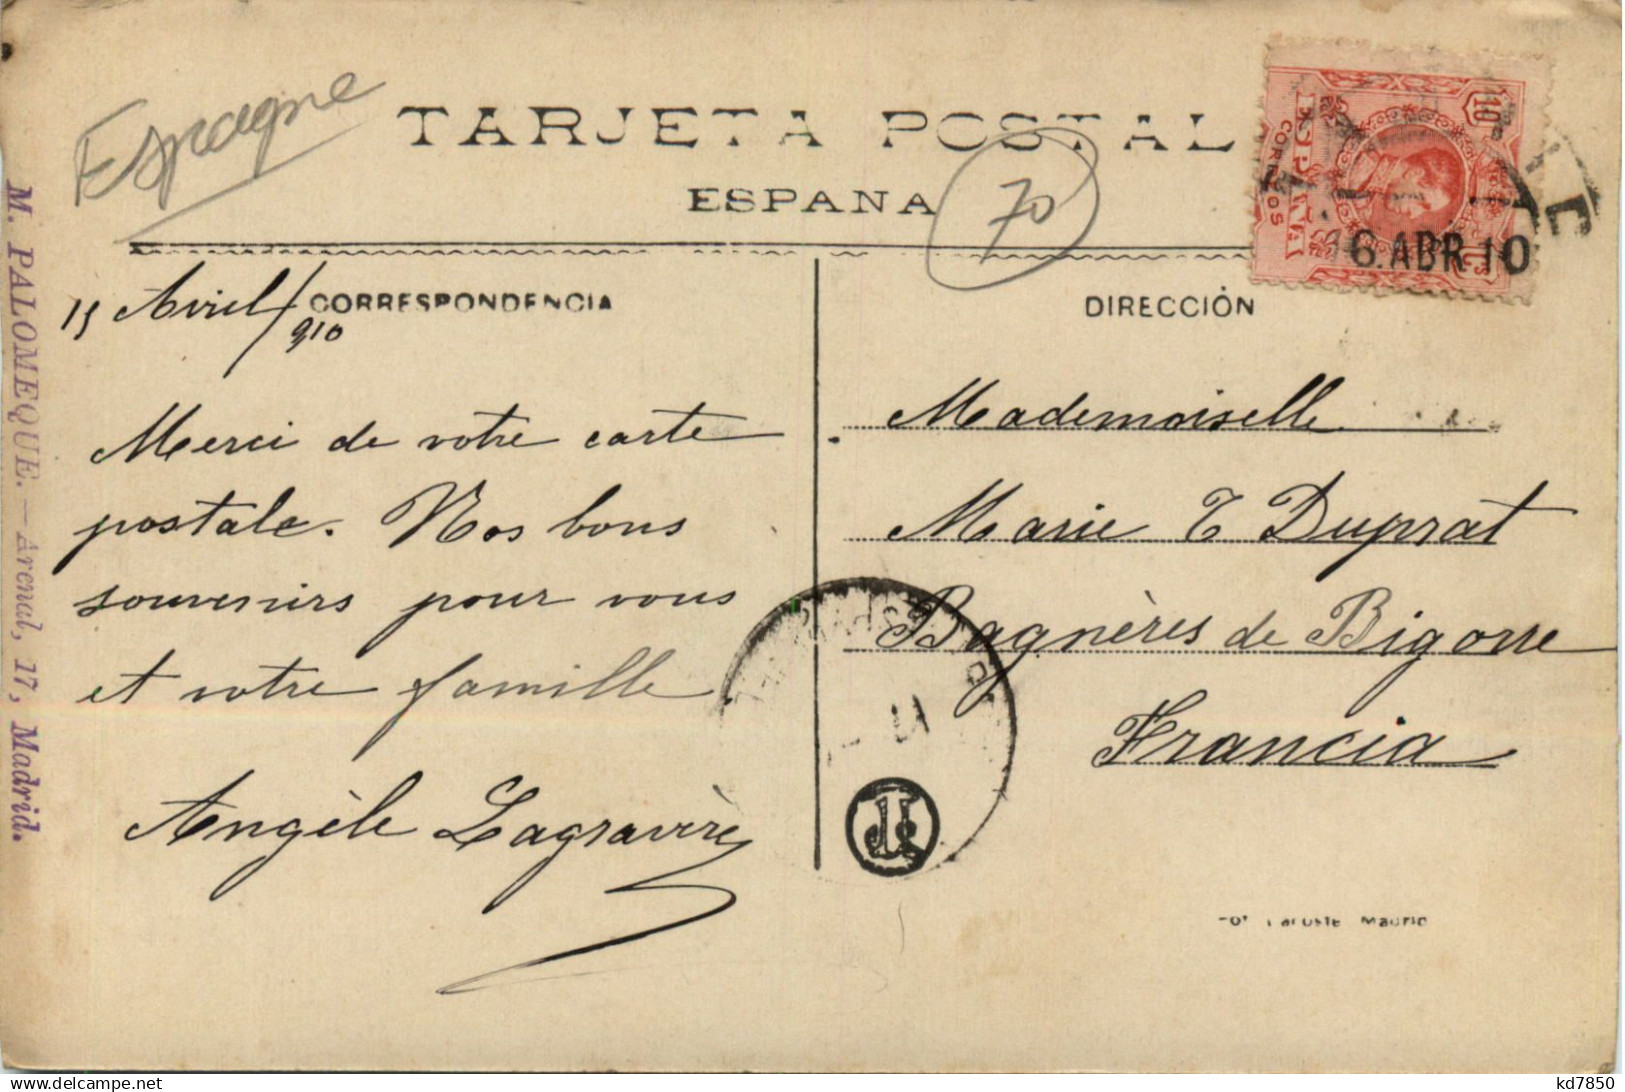 Espagne
TARJETA POSTAL
ESPANA
70
10
ESPAÑA
CORREOS
6.ABR 10
M. PALOMEQUE.—Arenal, 17, Madrid.
15 Avril/910
CORRESPONDENCIA
Merci de votre carte
postale. Nos bons
souvenirs pour vous
et votre famille.
Angèle Lagravère
DIRECCIÓN
Mademoiselle
Marie T Duprat
Bagnères de Bigorre
Francia
Fot Lacoste Madrid
kd7850